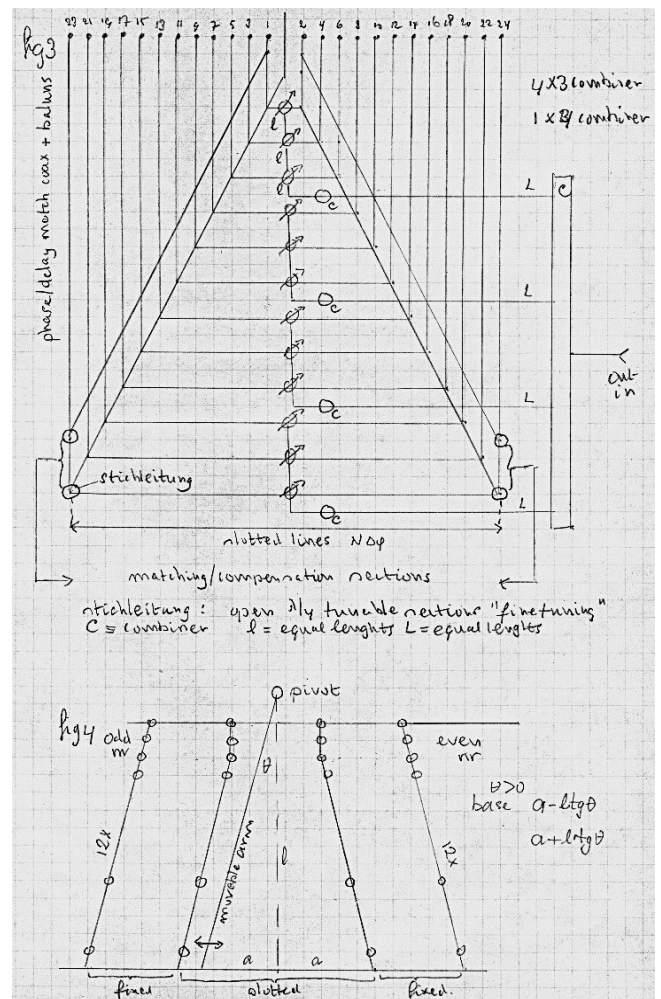 fig 3
23 21 19 17 15 13 11 9 7 5 3 1 2 4 6 8 10 12 14 16 18 20 22 24
phase/delay match coax + baluns
4 x 3 combiner
l
l
l
L
C
c
L
c
L
c
L
c
out-
in
stichleitung
slotted lines NΔφ
matching/compensation sections
stichleitung : open λ/4 tunable sections "finetuning"
C = combiner l = equal lenghts L = equal lenghts
pivot
fig 4
odd
nr
even
nr
θ
θ>0
base a - ltgθ
a + ltgθ
12x
movable arm
l
12x
a a
fixed slotted fixed